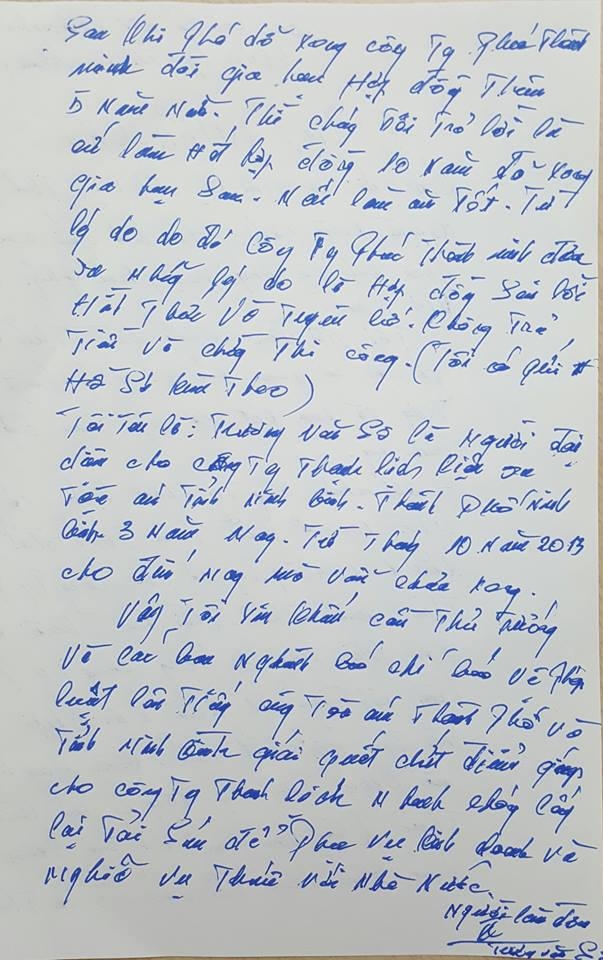 Sau khi phá dỡ xong công Ty Phúc Thành
ninh đòi gia hạn Hợp đồng Thêm
5 Năm Nữa. Thì chúng Tôi Trả lời là
cứ làm Hết hợp đồng 10 Năm đã xong
gia hạn Sau. Nếu làm ăn Tốt. Từ
lý do do đó Công Ty Phúc Thành ninh đưa
ra những lý do là Hợp đồng
Không Trả
Tiền Và Thi công. (Tôi có gửi
Hồ Sơ kèm Theo)
Tôi Tên là: Trương Văn Sở là Người đại
diện cho công Ty Thanh lịch kiện ra
Tòa án Tỉnh Ninh Bình. Thành Phố Ninh
Bình 3 Năm Nay. Từ Tháng 10 Năm 2013
cho đến Nay mà vẫn chưa xong.
Vậy Tôi Xin khẩn cầu Thủ Tướng
Và Các ban Nghành báo chí bảo vệ pháp
luật lên Tiếng cùng Tòa án Thành Phố và
Tỉnh Ninh Bình giải quyết chót điểm giúp
cho công Ty Thanh lịch Nhanh chóng lấy
lại Tài Sản để Phục Vụ kinh doanh và
Nghĩa vụ Thuế với Nhà Nước.
Người làm đơn
Trương văn Sở